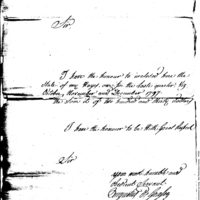 Sir
I have the honour to inclosed here the
State of my Ways, viz. for the last quarter by
October, November and December 1797
the Sum is of two hundred and thirty dollars
I have the honour to be With Great Respect
Sir
your most humble and
obedient Servant